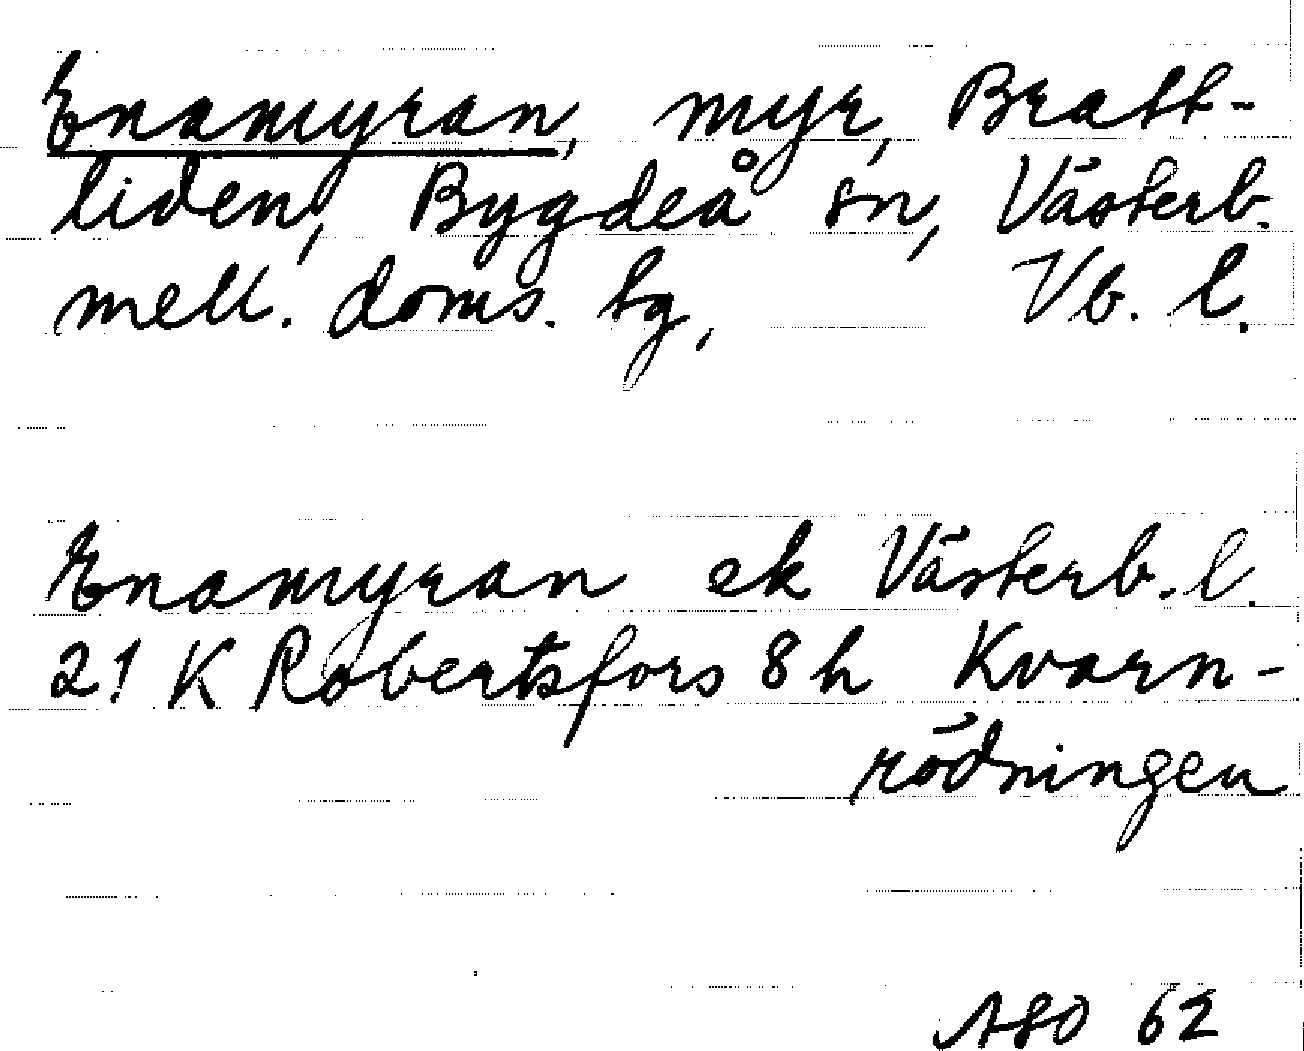 Enamyran, myr, Bratt-
liden, Bygdeå sn, Västerb.
mell. doms. tg, Vb. l.
Enamyran ek Västerb. l.
21 K Robertsfors 8 h Kvarn-
rödningen
ASO 62